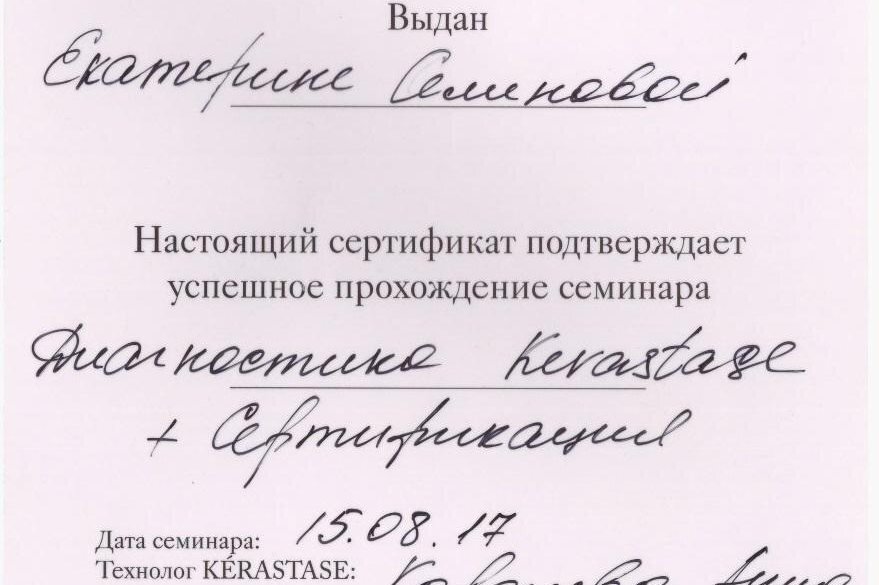 Выдан
Екатерине Семиновой
Настоящий сертификат подтверждает
успешное прохождение семинара
Диагностика Kerastase
+ Сертификация
Дата семинара: 15.08.17
Технолог KÉRASTASE: